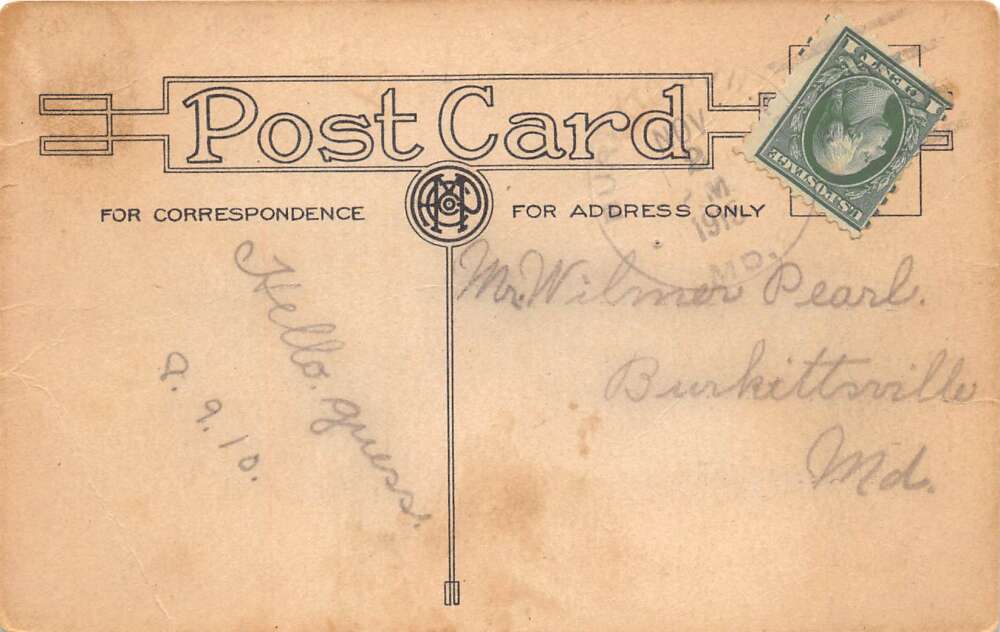 Post Card
FOR CORRESPONDENCE
FOR ADDRESS ONLY
NOV
2
M
MD.
U.S. POSTAGE
Hello. guess.
a. 9. 10.
Mr. Wilmer Pearl.
Burkittsville
Md.